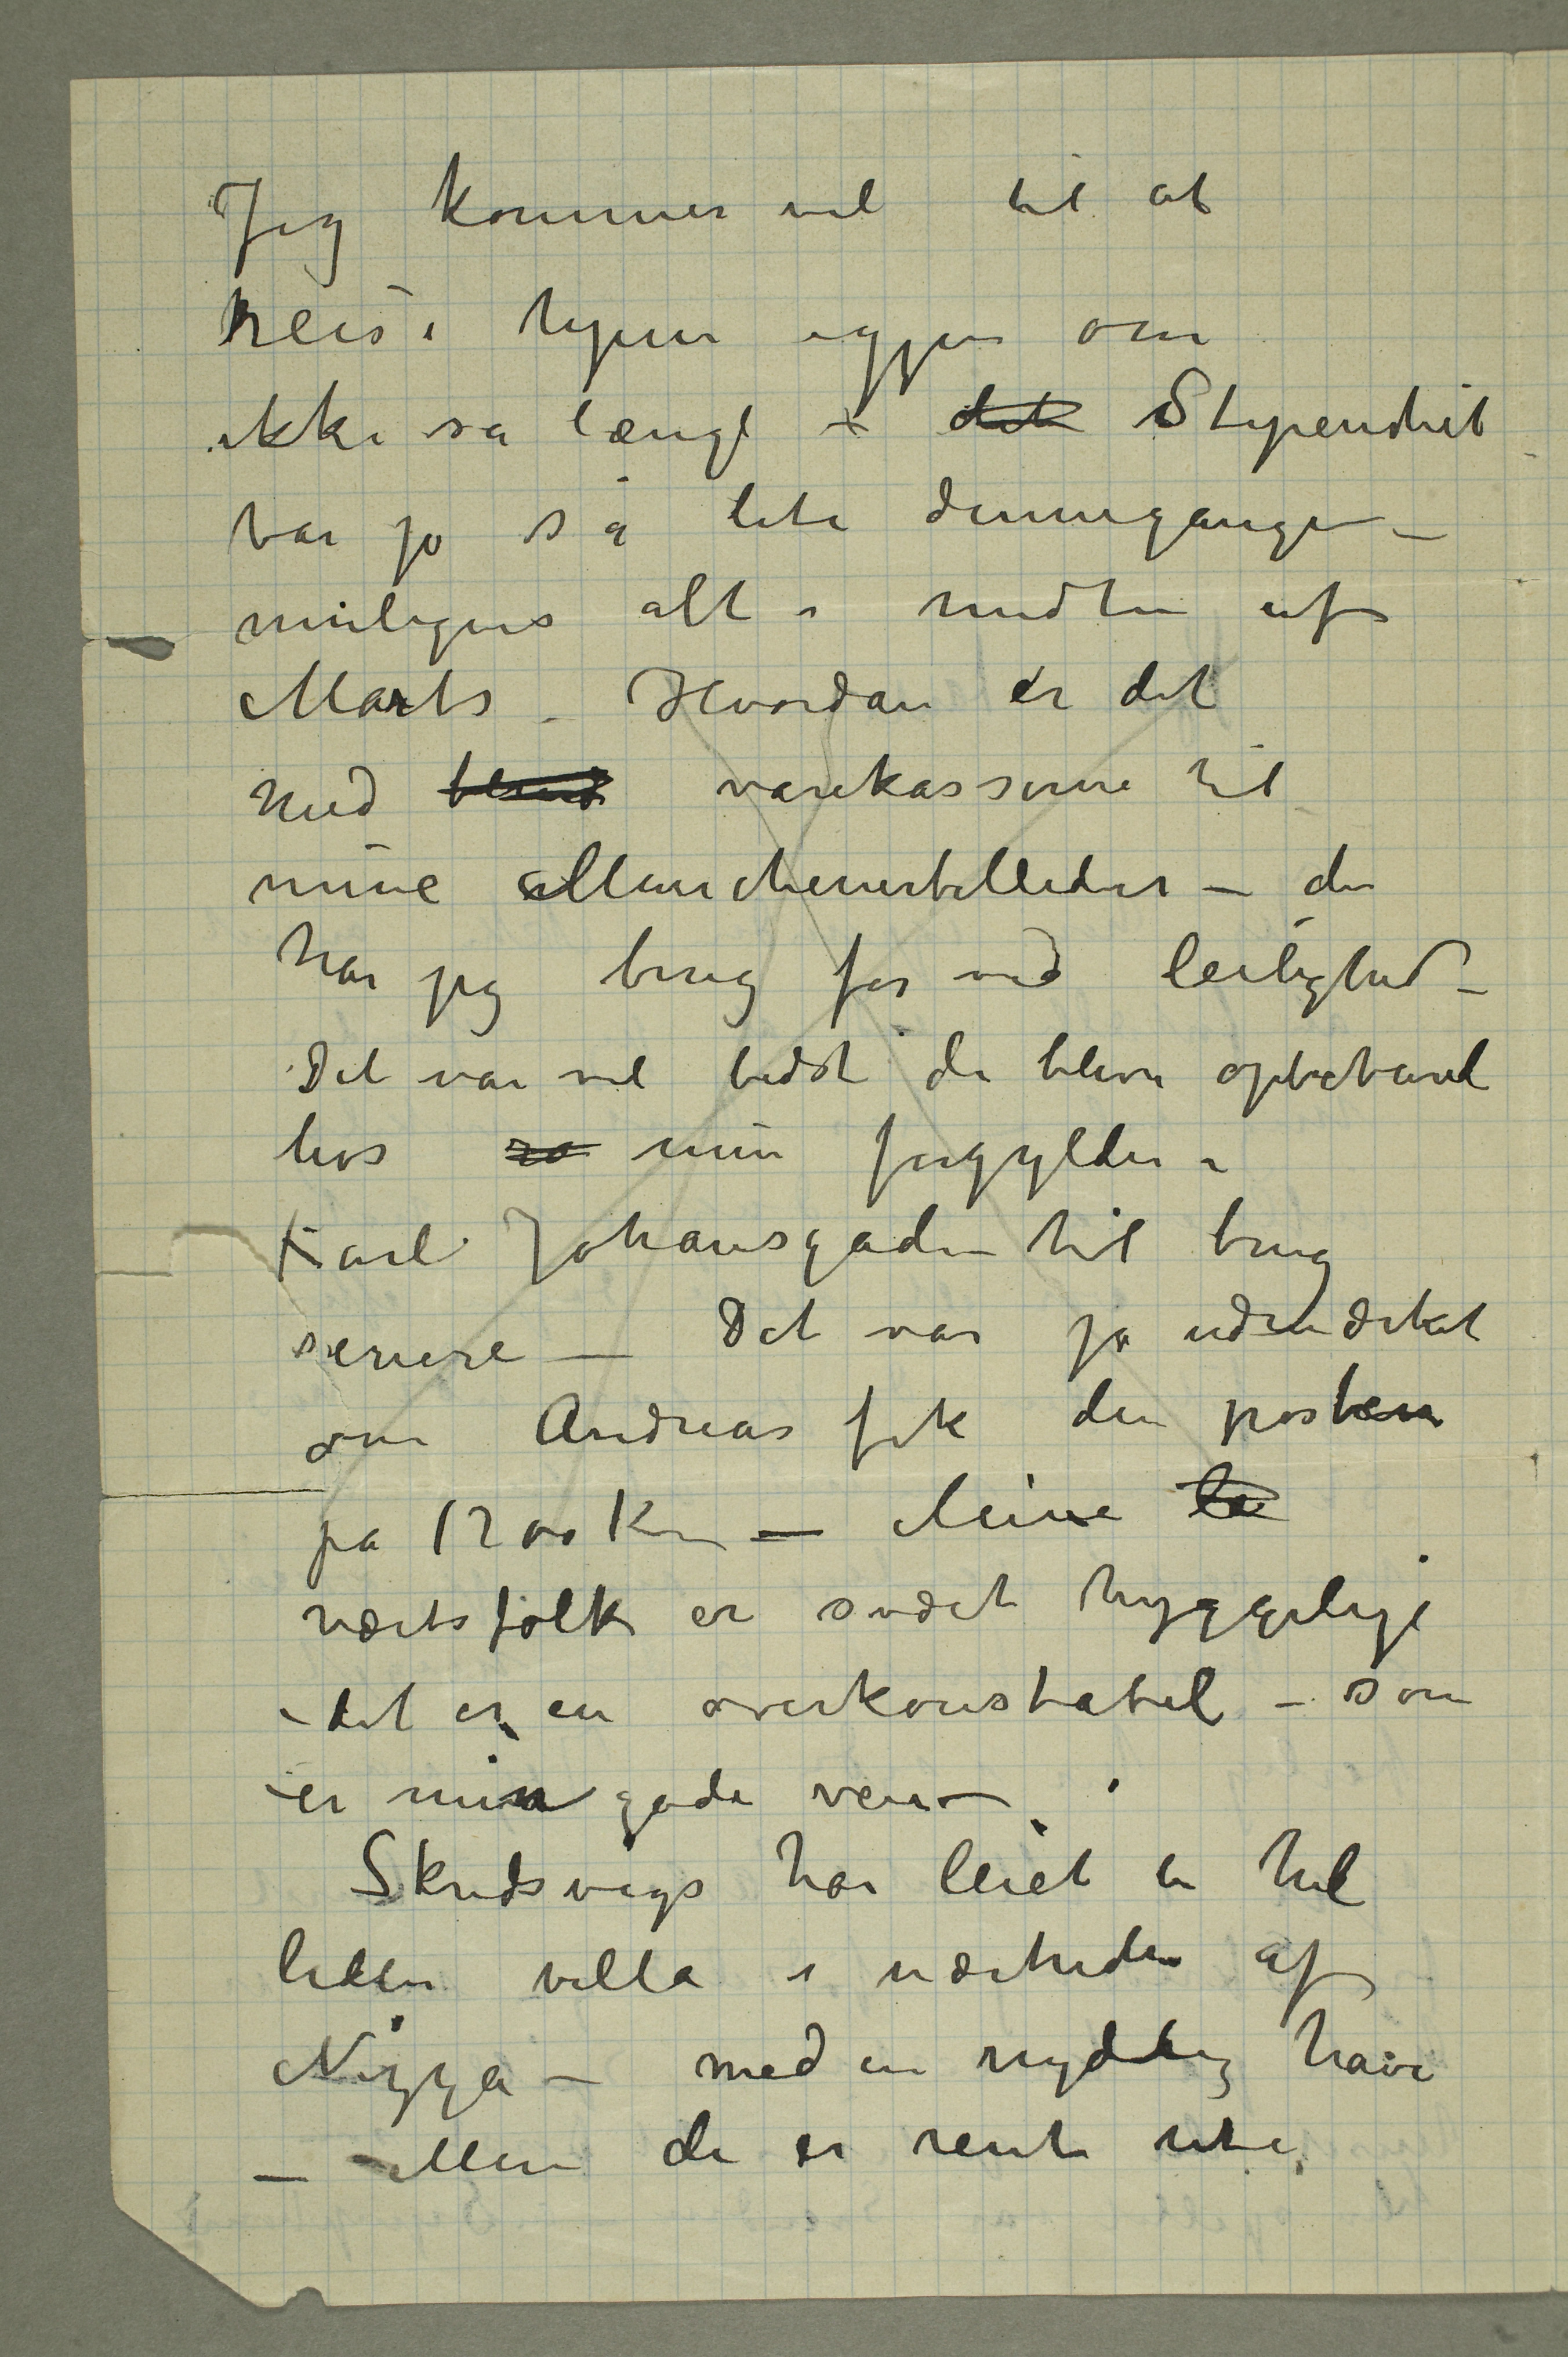 Jeg kommer vel til at
reise hjem igjen om
ikke så længe – det Stipendiet
var jo så lite dennegangen –
muligens alt i midten af
Marts – Hvordan er det
med varekasserne til
mine Münchenerbilleder – de
har jeg brug for ved leilighed –
Det var vel bedst de bleve opbevaret
hos min forgylder i
Karl Johansgaden til brug
senere – Det var jo udmærket
om Andreas fik den posten
på 1200 Kr – Mine
værtsfolk er svært hyggelige
– det er en overkonstabel – som
er min gode ven –
Skredsvigs har leiet en hel
liden villa i nærheden af
Nizza – med en nydelig have
– Men de er rent ute